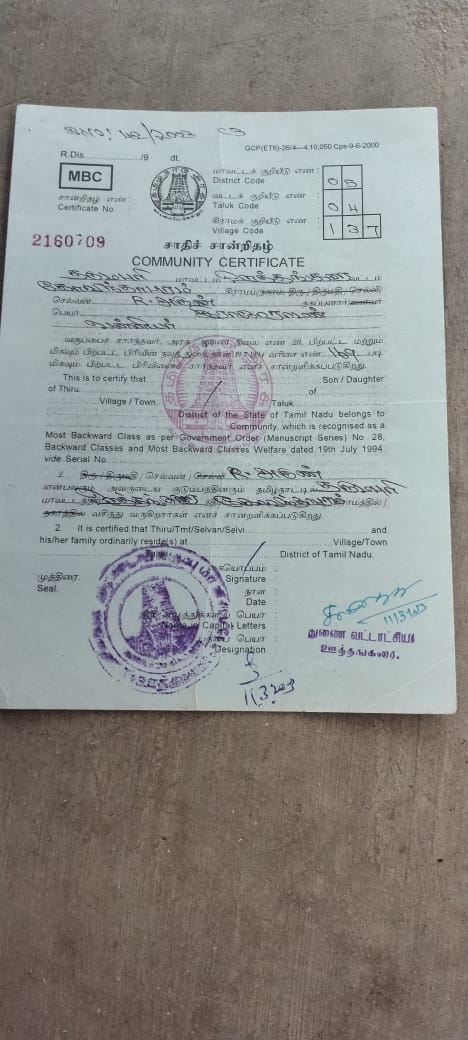 GCP(ET6)-26/4—4,10,050 Cps-9-6-2000
R.Dis............/9 dt.
MBC
மாவட்டக் குறியீடு எண் :
District Code
05
சான்றிதழ் எண் :
Certificate No.
வட்டக் குறியீடு எண் :
Taluk Code
04
கிராமக் குறியீடு எண் :
Village Code
137
2160709
சாதிச் சான்றிதழ்
COMMUNITY CERTIFICATE
தருமபுரி மாவட்டம் ஊத்தங்கரை வட்டம்
கிராமம்/நகரம் திரு/திருமதி/செல்வி/
செல்வன் R. அருண் தகப்பனார்/கணவர்
பெயர்
வன்னியர்
வகுப்பைச் சார்ந்தவர். அரசு ஆணை நிலை எண் 28, பிற்பட்ட மற்றும்
மிகவும் பிற்பட்ட பிரிவின் நலத் துறை, நாள் 19-7-1994 வரிசை எண். 169 படி
மிகவும் பிற்பட்ட பிரிவினைச் சார்ந்தவர் எனச் சான்றளிக்கப்படுகிறது.
This is to certify that Son / Daughter
of Thiru. of
Village / Town. Taluk
District of the State of Tamil Nadu belongs to
Community, which is recognised as a
Most Backward Class as per Government Order (Manuscript Series) No 28,
Backward Classes and Most Backward Classes Welfare dated 19th July 1994
vide Serial No.
2. திரு/திருமதி/செல்வன்/செல்வி R. அருண்
என்பவரும் அவருடைய குடும்பத்தினரும் தமிழ்நாட்டில் தருமபுரி
மாவட்டம் கிராமத்தில்/
நகரத்தில் வசித்து வருகிறார்கள் எனச் சான்றளிக்கப்படுகிறது.
2. It is certified that Thiru/Tmt/Selvan/Selvi and
his/her family ordinarily reside(s) at Village/Town
District of Tamil Nadu.
கையொப்பம் :
முத்திரை. Signature
Seal. நாள் :
Date
பெயர் :
Name in Capital Letters
பதவிப் பெயர் :
Designation
11/3/2003
துணை வட்டாட்சியர்
ஊத்தங்கரை.
11.3.2003